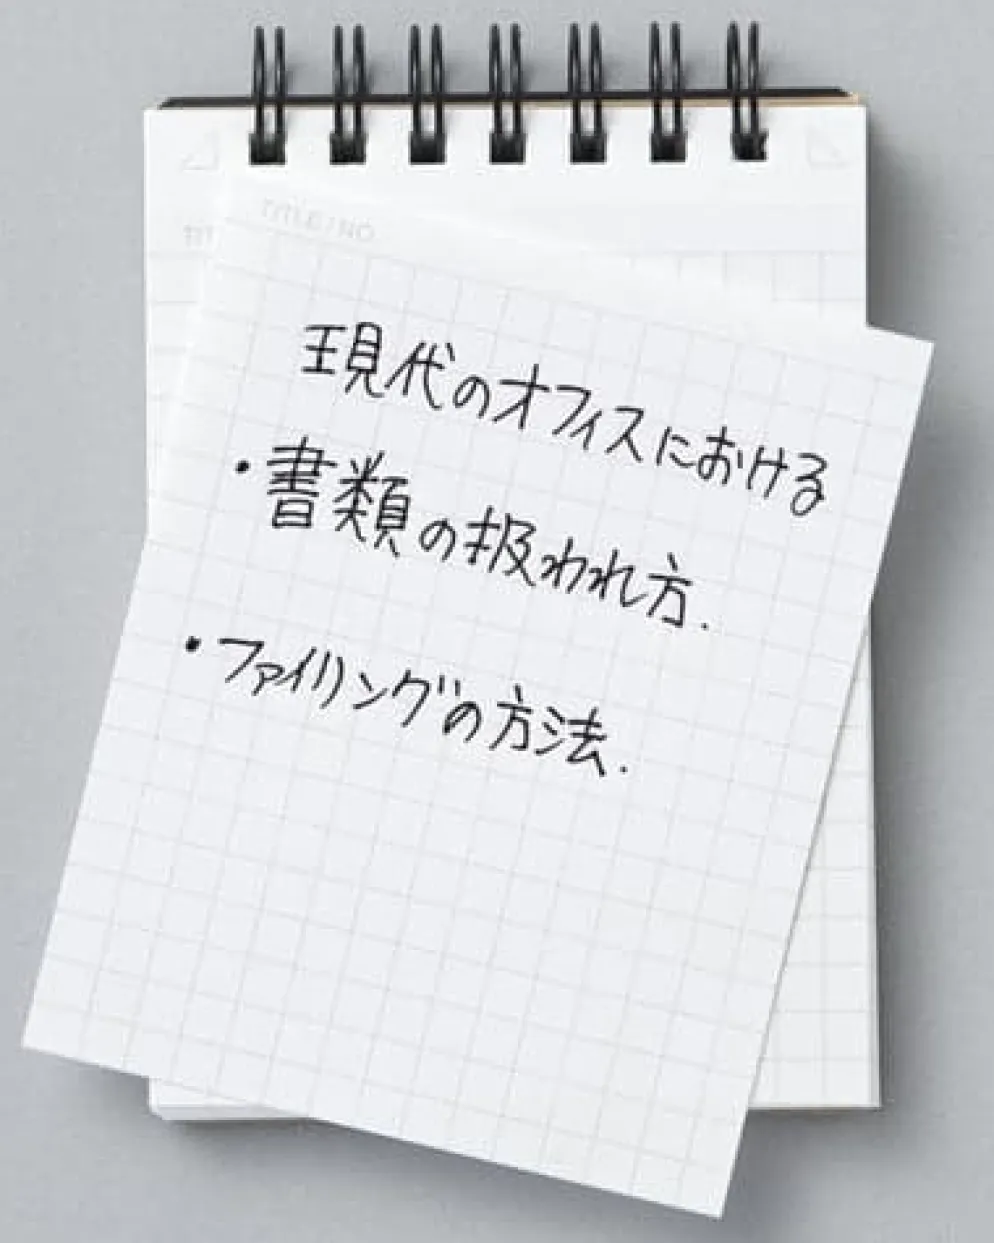 現代のオフィスにおける
・書類の扱われ方.
・ファイリングの方法.